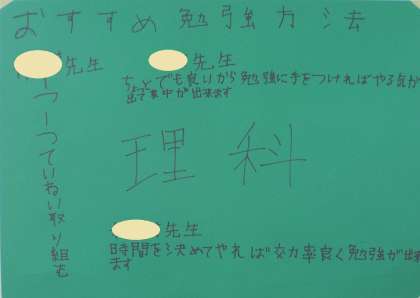 おすすめ勉強方法
先生
一つ一つていねいに取り組む
先生
ちょっとでも良いから勉強に手をつければやる気が
出て集中が出来ます
理科
先生
時間を決めてやれば効率良く勉強が出来
ます